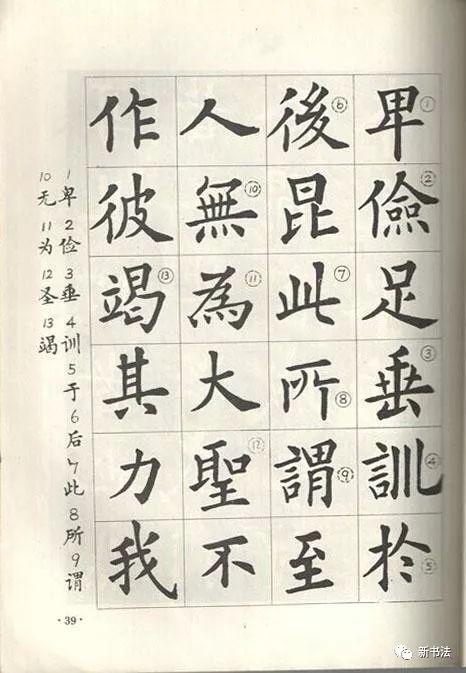 卑①儉②足垂③訓④於⑤
後⑥昆此⑦所⑧謂⑨至
人無⑩為⑪大聖⑫不
作彼竭⑬其力我
1卑2俭3垂4训5于6后7此8所9谓
10无11为12圣13竭
·39·
新书法